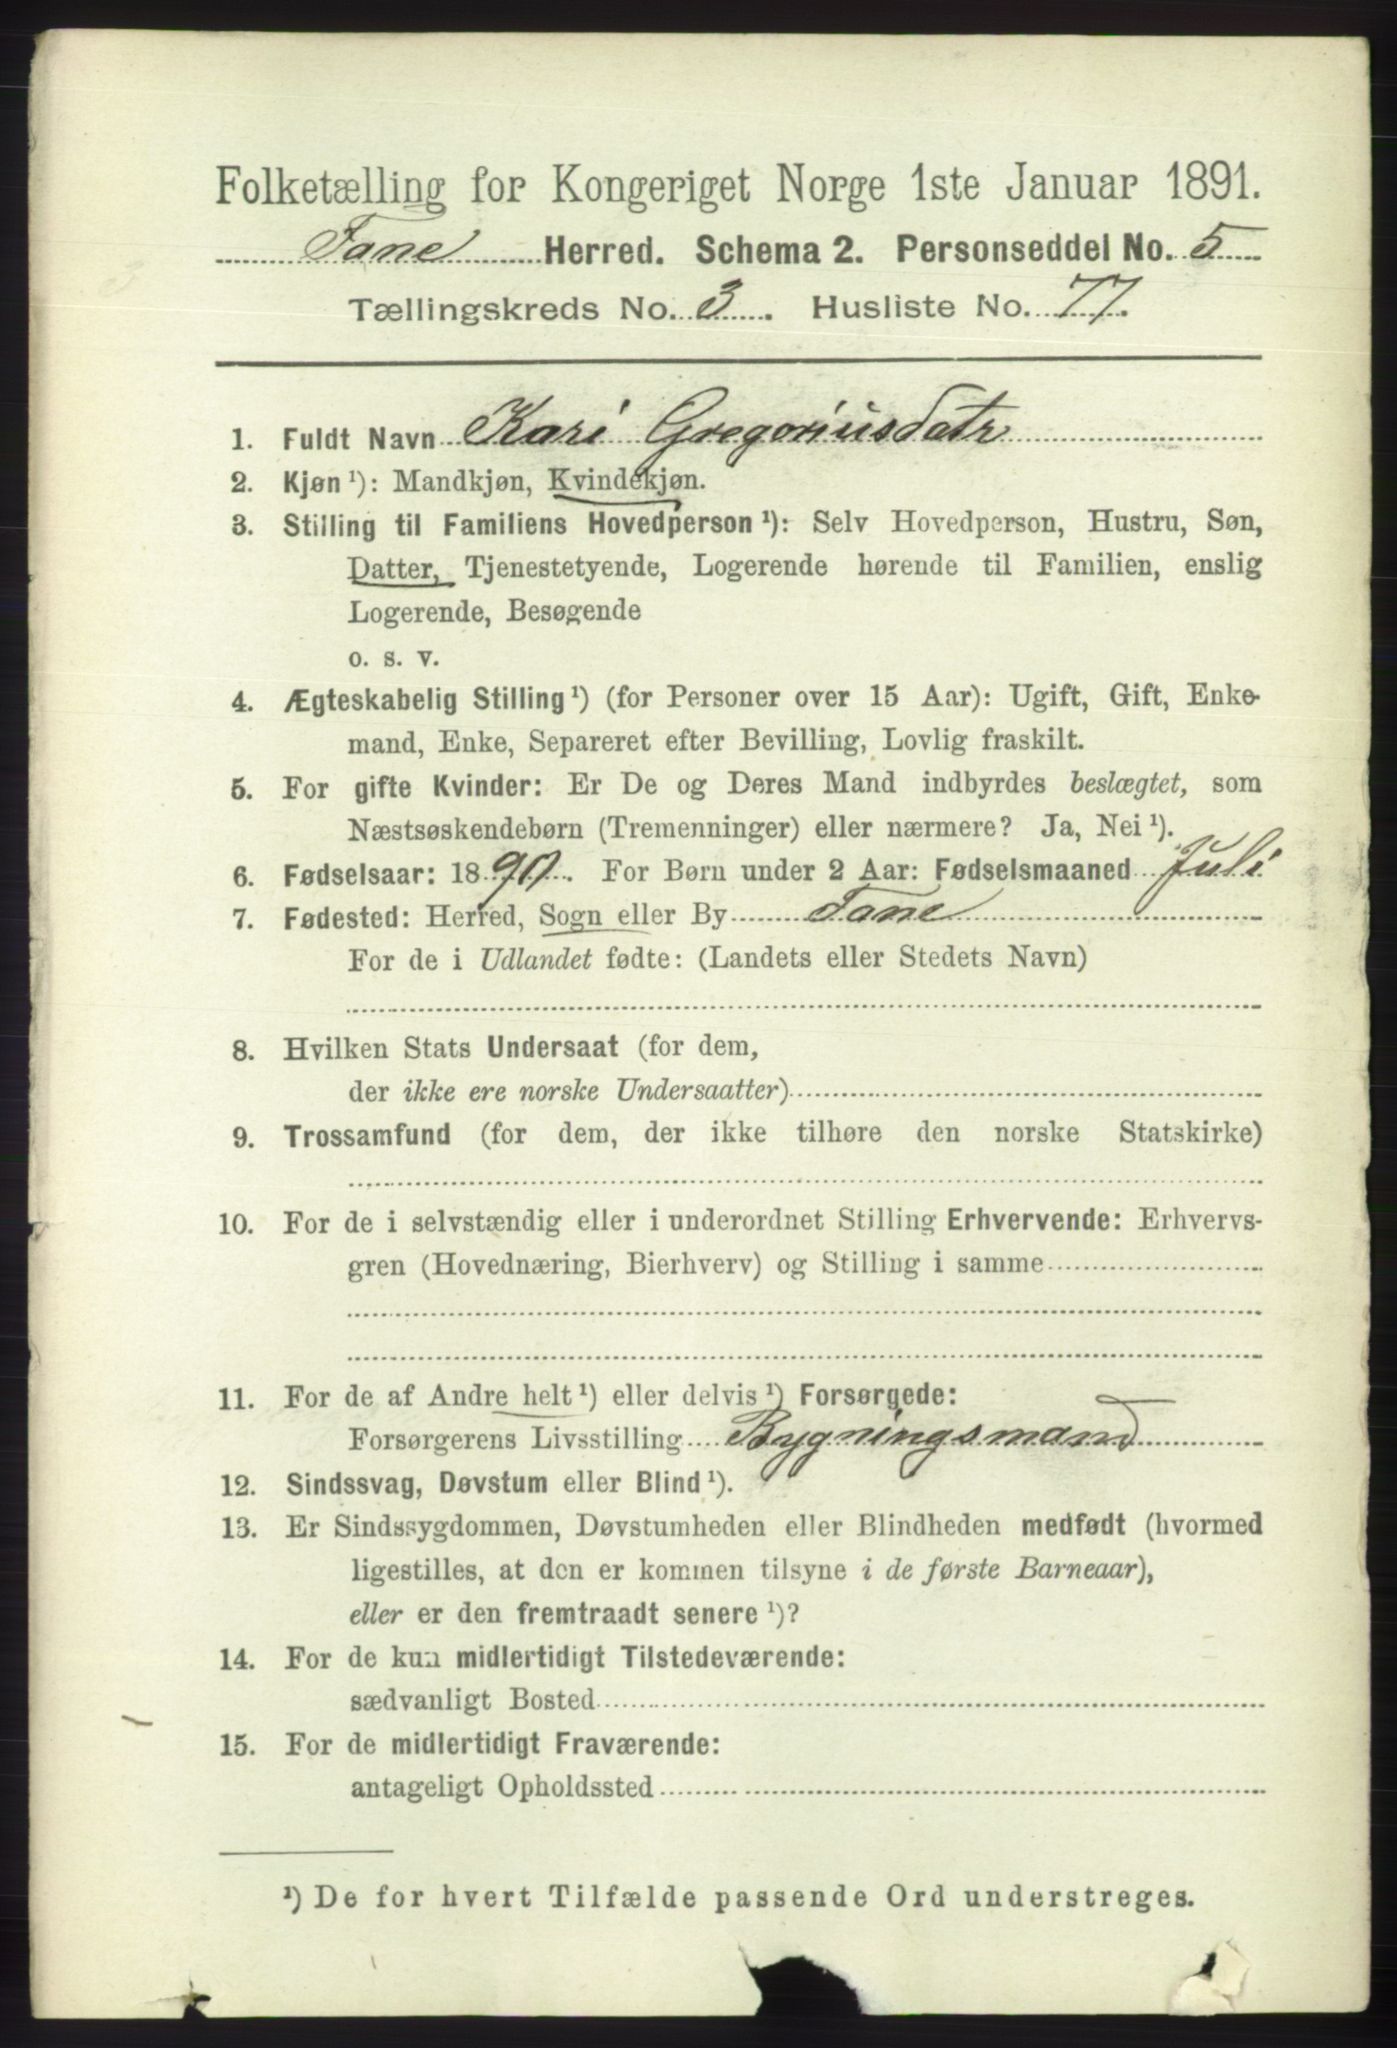 Folketælling for Kongeriget Norge 1ste Januar 1891.
Fane Herred. Schema 2. Personseddel No. 5
Tællingskreds No. 3. Husliste No. 77.
1. Fuldt Navn Kari Gregoriusdatr
2. Kjøn ¹): Mandkjøn, Kvindekjøn.
3. Stilling til Familiens Hovedperson ¹): Selv Hovedperson, Hustru, Søn,
Datter, Tjenestetyende, Logerende hørende til Familien, enslig
Logerende, Besøgende
o. s. v.
4. Ægteskabelig Stilling ¹) (for Personer over 15 Aar): Ugift, Gift, Enke-
mand, Enke, Separeret efter Bevilling, Lovlig fraskilt.
5. For gifte Kvinder: Er De og Deres Mand indbyrdes beslægtet, som
Næstsøskendebørn (Tremenninger) eller nærmere? Ja, Nei ¹).
6. Fødselsaar: 1890. For Børn under 2 Aar: Fødselsmaaned Juli
7. Fødested: Herred, Sogn eller By Fane
For de i Udlandet fødte: (Landets eller Stedets Navn)
8. Hvilken Stats Undersaat (for dem,
der ikke ere norske Undersaatter)
9. Trossamfund (for dem, der ikke tilhøre den norske Statskirke)
10. For de i selvstændig eller i underordnet Stilling Erhvervende: Erhvervs-
gren (Hovednæring, Bierhverv) og Stilling i samme
11. For de af Andre helt ¹) eller delvis ¹) Forsørgede:
Forsørgerens Livsstilling Bygningsmand
12. Sindssvag, Døvstum eller Blind ¹).
13. Er Sindssygdommen, Døvstumheden eller Blindheden medfødt (hvormed
ligestilles, at den er kommen tilsyne i de første Barneaar),
eller er den fremtraadt senere ¹)?
14. For de kun midlertidigt Tilstedeværende:
sædvanligt Bosted
15. For de midlertidigt Fraværende:
antageligt Opholdssted
¹) De for hvert Tilfælde passende Ord understreges.